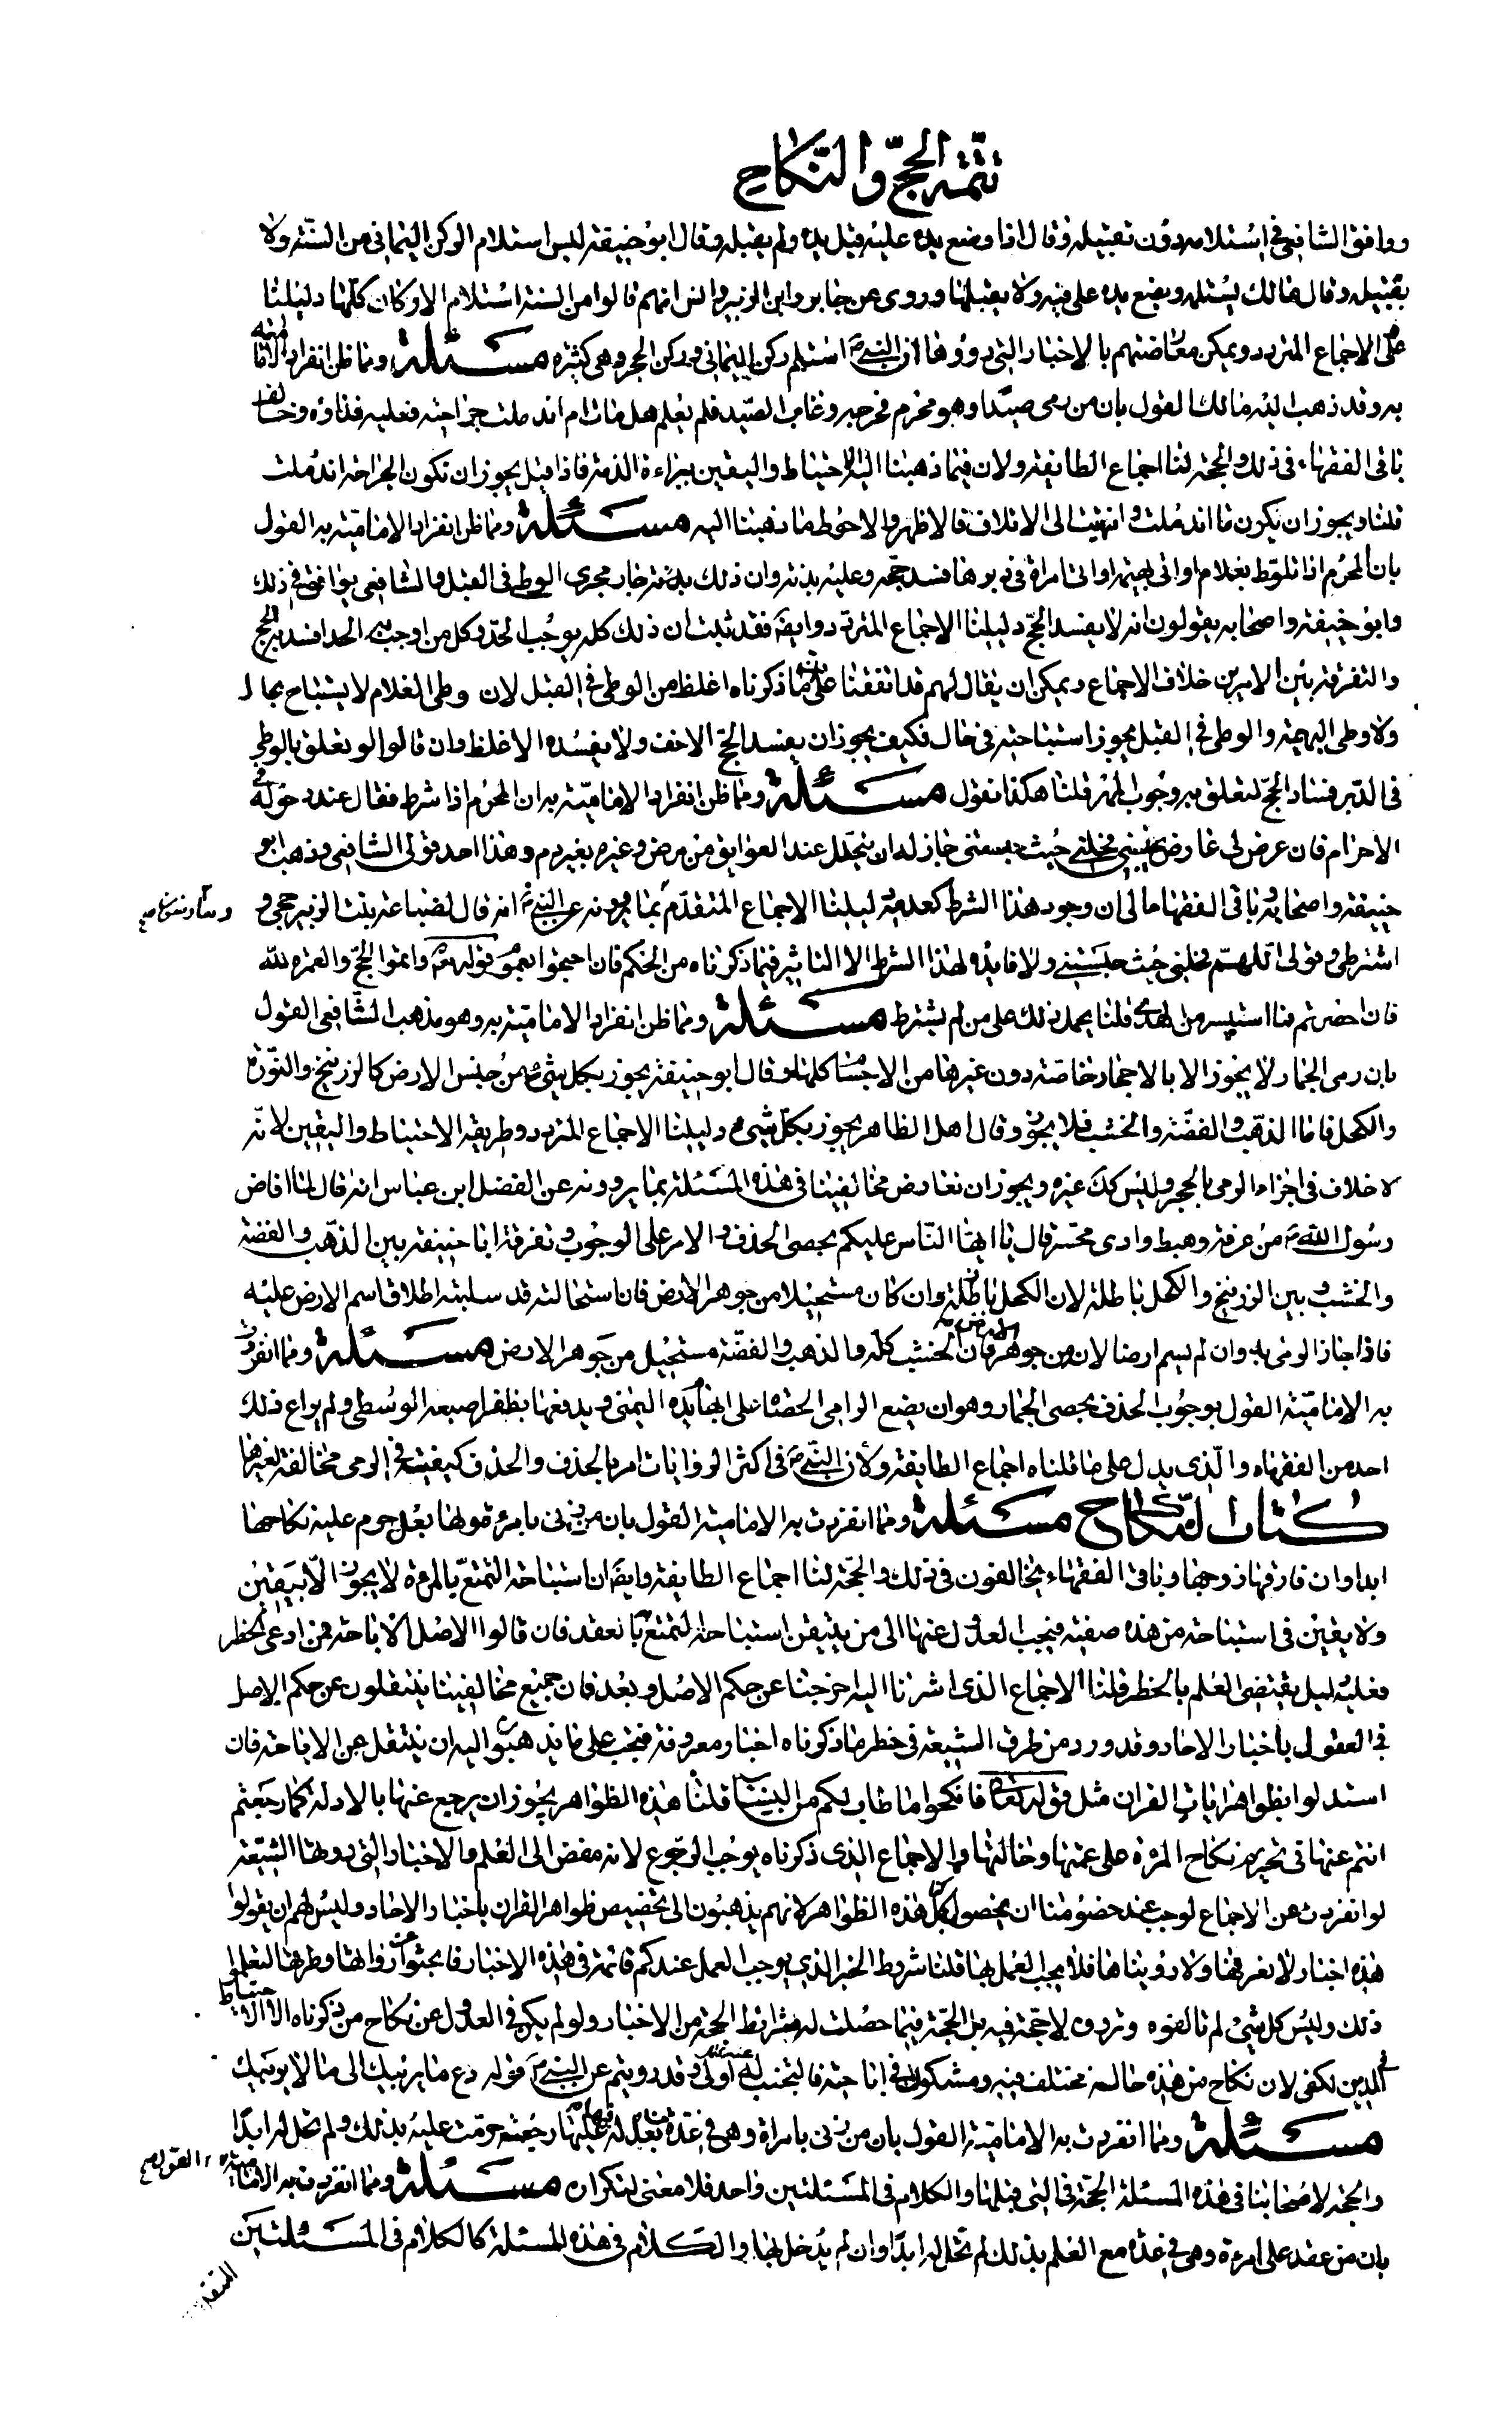 تتمة الحجّ والنّكاح
ووافق الشافعي في استلامه دون تقبيله وقال اذا وضع يده عليه قبل يده ولم يقبله وقال ابو حنيفة ليس استلام الركن اليماني من السنّة ولا
بتقبيله وقال مالك يستلمه ويضع يده على فيه ولا يقبلها وروى عن جابر وابن الزبير وانس انهم قالوا من السنة استلام الاركان كلّها دليلنا
على الاجماع المتردد ويمكن معارضتهم بالاخبار التي رووها ان النبي ص استلم ركن اليماني وركن الحجر وهي كثيره مسئلة ومما ظن انفراد الامامية
به وقد ذهب اليه مالك القول بان من رمى صيدا وهو محرم فجرحه وغاب الصّيد فلم يعلم هل مات ام اندملت جراحته فعليه فداؤه وخالف
باقى الفقهاء فى ذلك والحجة لنا اجماع الطايفة ولان فيما ذهبنا اليه الاحتياط واليقين ببراءة الذمة فاذا قيل يجوز ان تكون الجراحة اندملت
قلنا ويجوز ان يكون ما اندملت وانتهيت الى الاتلاف فالاظهر والاحوط ما ذهبنا اليه مسئلة ومما ظن انفراد الامامية به القول
بان المحرم اذا تلوّط بغلام او اتى بهيمة او اتى امراة فى دبرها فسد حجه وعليه بدنة وان ذلك جار مجرى الوطى فى القبل والشافعى يوافق فى ذلك
وابو حنيفة واصحابه يقولون انه لا يفسد الحجّ دليلنا الاجماع المتردد وايضا فقد ثبت ان ذلك كله يوجب الحدّ وكل من اوجب به الحد افسد به الحج
والتفرقة بين الامرين خلاف الاجماع ويمكن ان يقال لهم قد اتفقنا على ان ما ذكرناه اغلظ من الوطى فى القبل لان وطى الغلام لا يستباح بحال
ولا وطى البهيمة والوطى فى القبل يجوز استباحته فى حال فكيف يجوز ان يفسد الحجّ الاخف ولا يفسده الاغلظ وان قالوا لو تعلق بالوطى
فى الدّبر فساد الحجّ لتعلق به وجوب المهر قلنا هكذا نقول مسئلة ومما ظن انفراد الامامية به ان المحرم اذا شرط فقال عند دخوله فى
الاحرام فان عرض لى عارض يحبسنى فحلنى حيث حبستنى جاز له ان يتحلل عند العوايق من مرض وغيره بغير دم وهذا احد قولى الشافعى وذهب ابو
حنيفة واصحابه وباقى الفقهاء الى ان وجود هذا الشرط كعدمه دليلنا الاجماع المتقدّم بما يروونه عن النبى ص انه قال لضباعة بنت الزبير حجى و
اشترطى وقولى اللهم فحلنى حيث حبستنى ولا فايدة لهذا الشرط الا التاثير فيما ذكرناه من الحكم فان احتجوا بعموم قوله تعالى واتموا الحجّ والعمرة لله
فان احصرتم فما استيسر من الهدى قلنا يحمل ذلك على من لم يشترط مسئلة ومما ظن انفراد الامامية به وهو مذهب الشّافعى القول
بان رمى الجمار لا يجوز الا بالاحجار خاصّة دون غيرها من الاجسام كلها وقال ابو حنيفة يجوز بكل شىء من جنس الارض كالزرنيخ والنّورة
والكحل فاما الذهب والفضّة والخشب فلا يجوز وقال اهل الظاهر يجوز بكل شىء دليلنا الاجماع المتردد وطريقة الاحتياط واليقين لانّه
لا خلاف فى اجزاء الرمى بالحجر وليس كك غيره ويجوز ان نعارض مخالفينا فى هذه المسئلة بما يروونه عن الفضل ابن عباس انه قال لما افاض
رسول الله ص من عرفة وهبط وادى محسّر قال يا ايها النّاس عليكم بحصى الخذف والامر على الوجوب وتفرقة ابا حنيفة بين الذّهب والفضة
والخشب وبين الزرنيخ والكحل باطلة لان الكحل باطلة وان كان مستحيلا من جوهر الارض فان استحالته قد سلبته اطلاق اسم الارض عليه
فاذا جاز الرمى به وان لم يسم ارضا لانه من جوهر الارض فان الخشب كله والذهب والفضّة مستحيل من جوهر الارض مسئلة ومما انفردت
به الامامّية القول بوجوب الخذف بحصى الجمار وهو ان يضع الرامى الحصاة على ابهام يده اليمنى ويدفعها بظفر اصبعه الوسطى ولم يراع ذلك
احد من الفقهاء والّذى يدل على ما قلناه اجماع الطايفة ولان النبى ص فى اكثر الروايات امر بالخذف والخذف كيفية فى الرمى مخالفة لغيرها
كتاب النّكاح مسئلة ومما انفردت به الامامية القول بان من زنى بامرءة ولها بعل حرم عليه نكاحها
ابدا وان فارقها زوجها وباقى الفقهاء يخالفون فى ذلك والحجّة لنا اجماع الطايفة وايضا ان استباحة التمتعّ بالمرءة لا يجوز الّا بيقين
ولا يقين فى استباحة من هذه صفته فيجب العدول عنها الى من يتيقن استباحة التمتع به بالعقد فان قالوا الاصل الاباحة فمن ادعى الحظر
فعليه دليل يقتضى العلم بالحظر قلنا الاجماع الذى اشرنا اليه اخرجنا عن حكم الاصل وبعد فان جميع مخالفينا ينتقلون عن حكم الاصل
فى العقول باخبار الاحاد وقد ورد من طرق الشيعة فى حظر ما ذكرناه اخبار معروفة فيجب على ما يذهبون اليه ان ينتقل عن الاباحة فان
استدلوا بظواهر ايات القران مثل قوله تعالى فانكحوا ما طاب لكم من النساء قلنا هذه الظواهر يجوز ان يرجع عنها بالادلة كما رجعتم
انتم عنها فى تحريم نكاح المرءة على عمتها وخالتها والاجماع الذى ذكرناه يوجب الرجوع لانه مفض الى العلم والاخبار التى روتها الشيعة
لو انفردت عن الاجماع لوجب عند خصومنا ان يخصوا بها كل هذه الظواهر لانهم يذهبون الى تخصيص ظواهر القران باخبار الاحاد وليس لهم ان يقولوا
هذه اخبار لا نعرفها ولا رويناها فلا يجب العمل بها قلنا شروط الخبر الذى يوجب العمل عندكم قائمة فى هذه الاخبار فابحثوا عن رواتها وطرقها لتعلموا
ذلك وليس كل شىء لم تالفوه وترووه لا حجّة فيه بل الحجّة فيما حصلت له شرائط الحجة من الاخبار ولو لم يكن فى العدول عن نكاح من ذكرناه الا الاحتياط
فى الدين لكفى لان نكاح من هذه حاله مختلف فيه ومشكوك فى اباحته فالتجنب له اولى وقد رويتم عن النبى ص قوله دع ما يريبك الى ما لا يريبك
مسئلة ومما انفردت به الامامية القول بان من زنى بامراة وهى فى عدة من بعل له عليها فيها رجعة حرمت عليه بذلك ولم تحل له ابدًا
والحجة لاصحابنا فى هذه المسئلة الحجّة فى التى قبلها والكلام فى المسئلتين واحد فلا معنى لتكراره مسئلة ومما انفردت به الامامية القول
بان من عقد على امرءة وهى فى عدة مع العلم بذلك لم تحل له ابدًا وان لم يدخل بها والكلام فى هذه المسئلة كالكلام فى المسئلتين